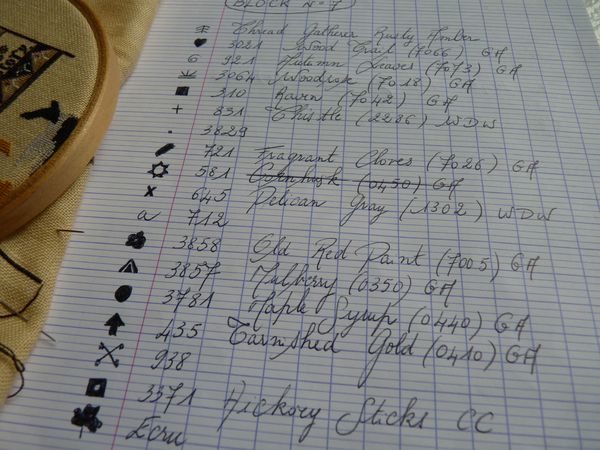 (BLOCK N° 7)
Thread Gatherer Rusty Amber
3021 Wood Trail (7066) GA
921 Autumn Leaves (7073) GA
3064 Woodrose (7018) GA
310 Raven (7042) GA
831 Thistle (2286) WDW
3829
721 Fragrant Cloves (7026) GA
581 Cornhusk (0450) GA
645 Pelican Gray (1302) WDW
a 712
3858 Old Red Paint (7005) GA
3857 Mulberry (0350) GA
3781 Maple Syrup (0440) GA
435 Tarnished Gold (0410) GA
938
3371 Hickory Sticks CC
Ecru